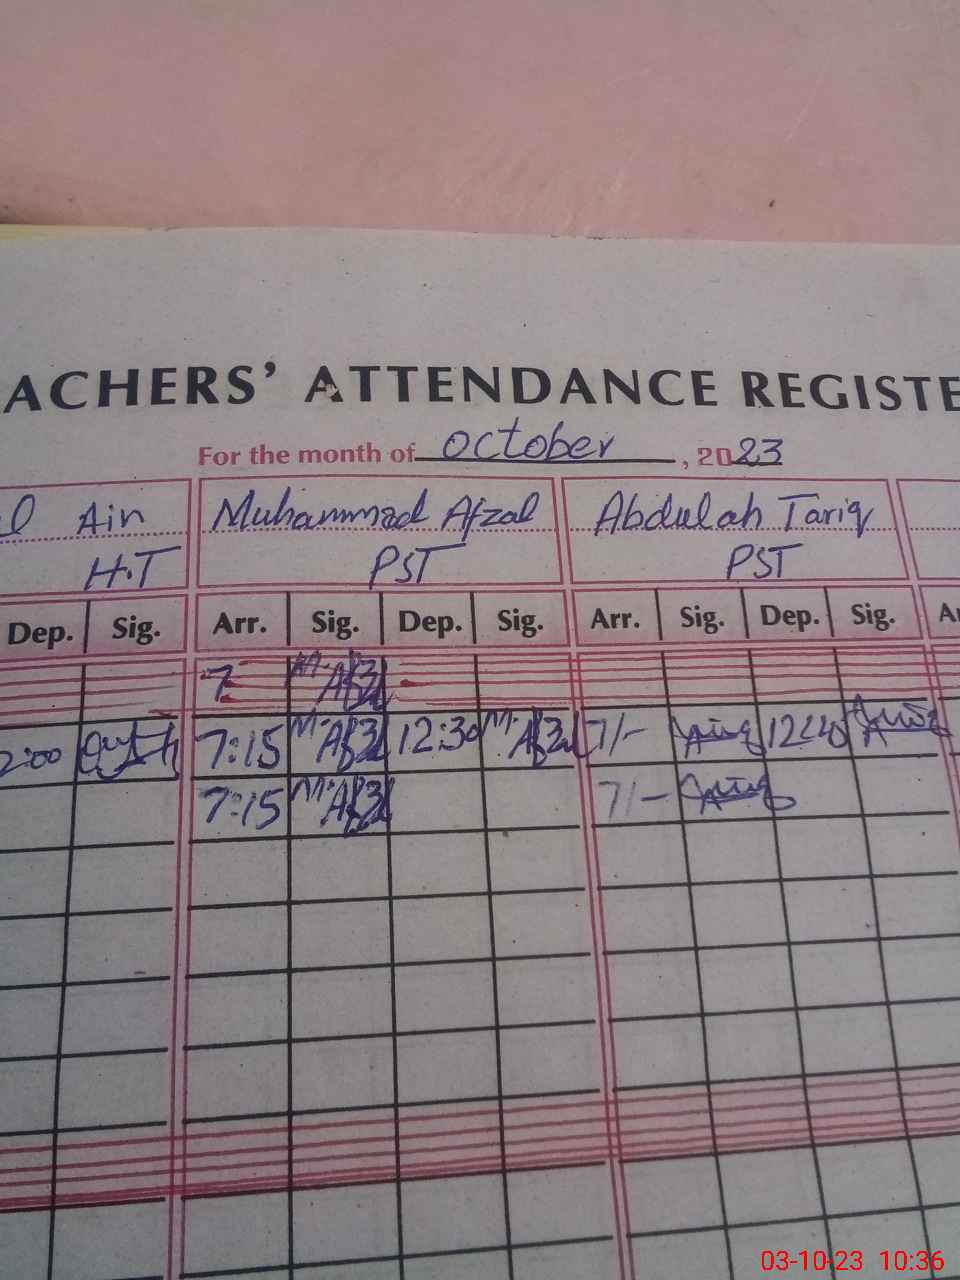 ACHERS' ATTENDANCE REGISTE
For the month of October, 2023
l Ain Muhammad Afzal Abdulah Tariq
H.T PST PST
Dep. Sig. Arr. Sig. Dep. Sig. Arr. Sig. Dep. Sig. Ar
7 M.Afzl
2:00 7:15 M.Afzl 12:30 M.Afzl 7/- 1240
7:15 M.Afzl 7/-
03-10-23 10:36